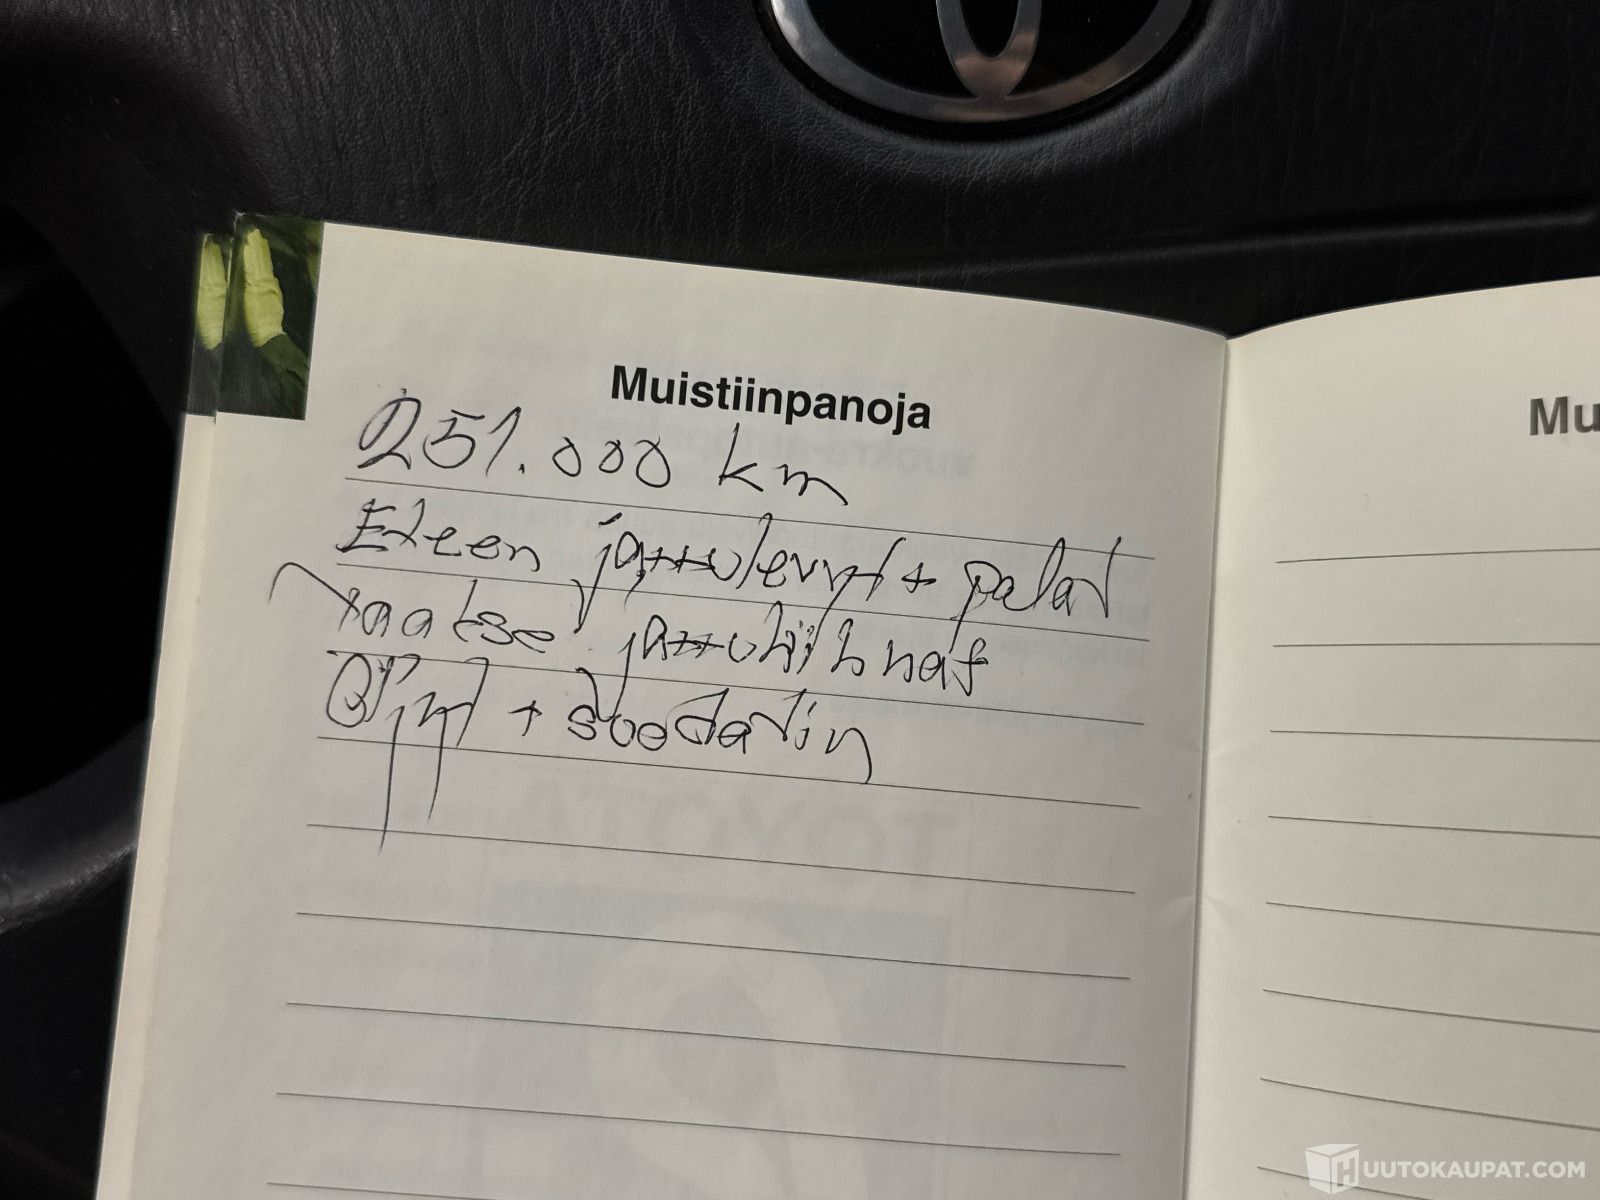 Muistiinpanoja
251.000 km
Eteen jarrulevyt + palat
Taakse jarrukihnat
Öljyt + suodatin
Mu
HUUTOKAUPAT.COM